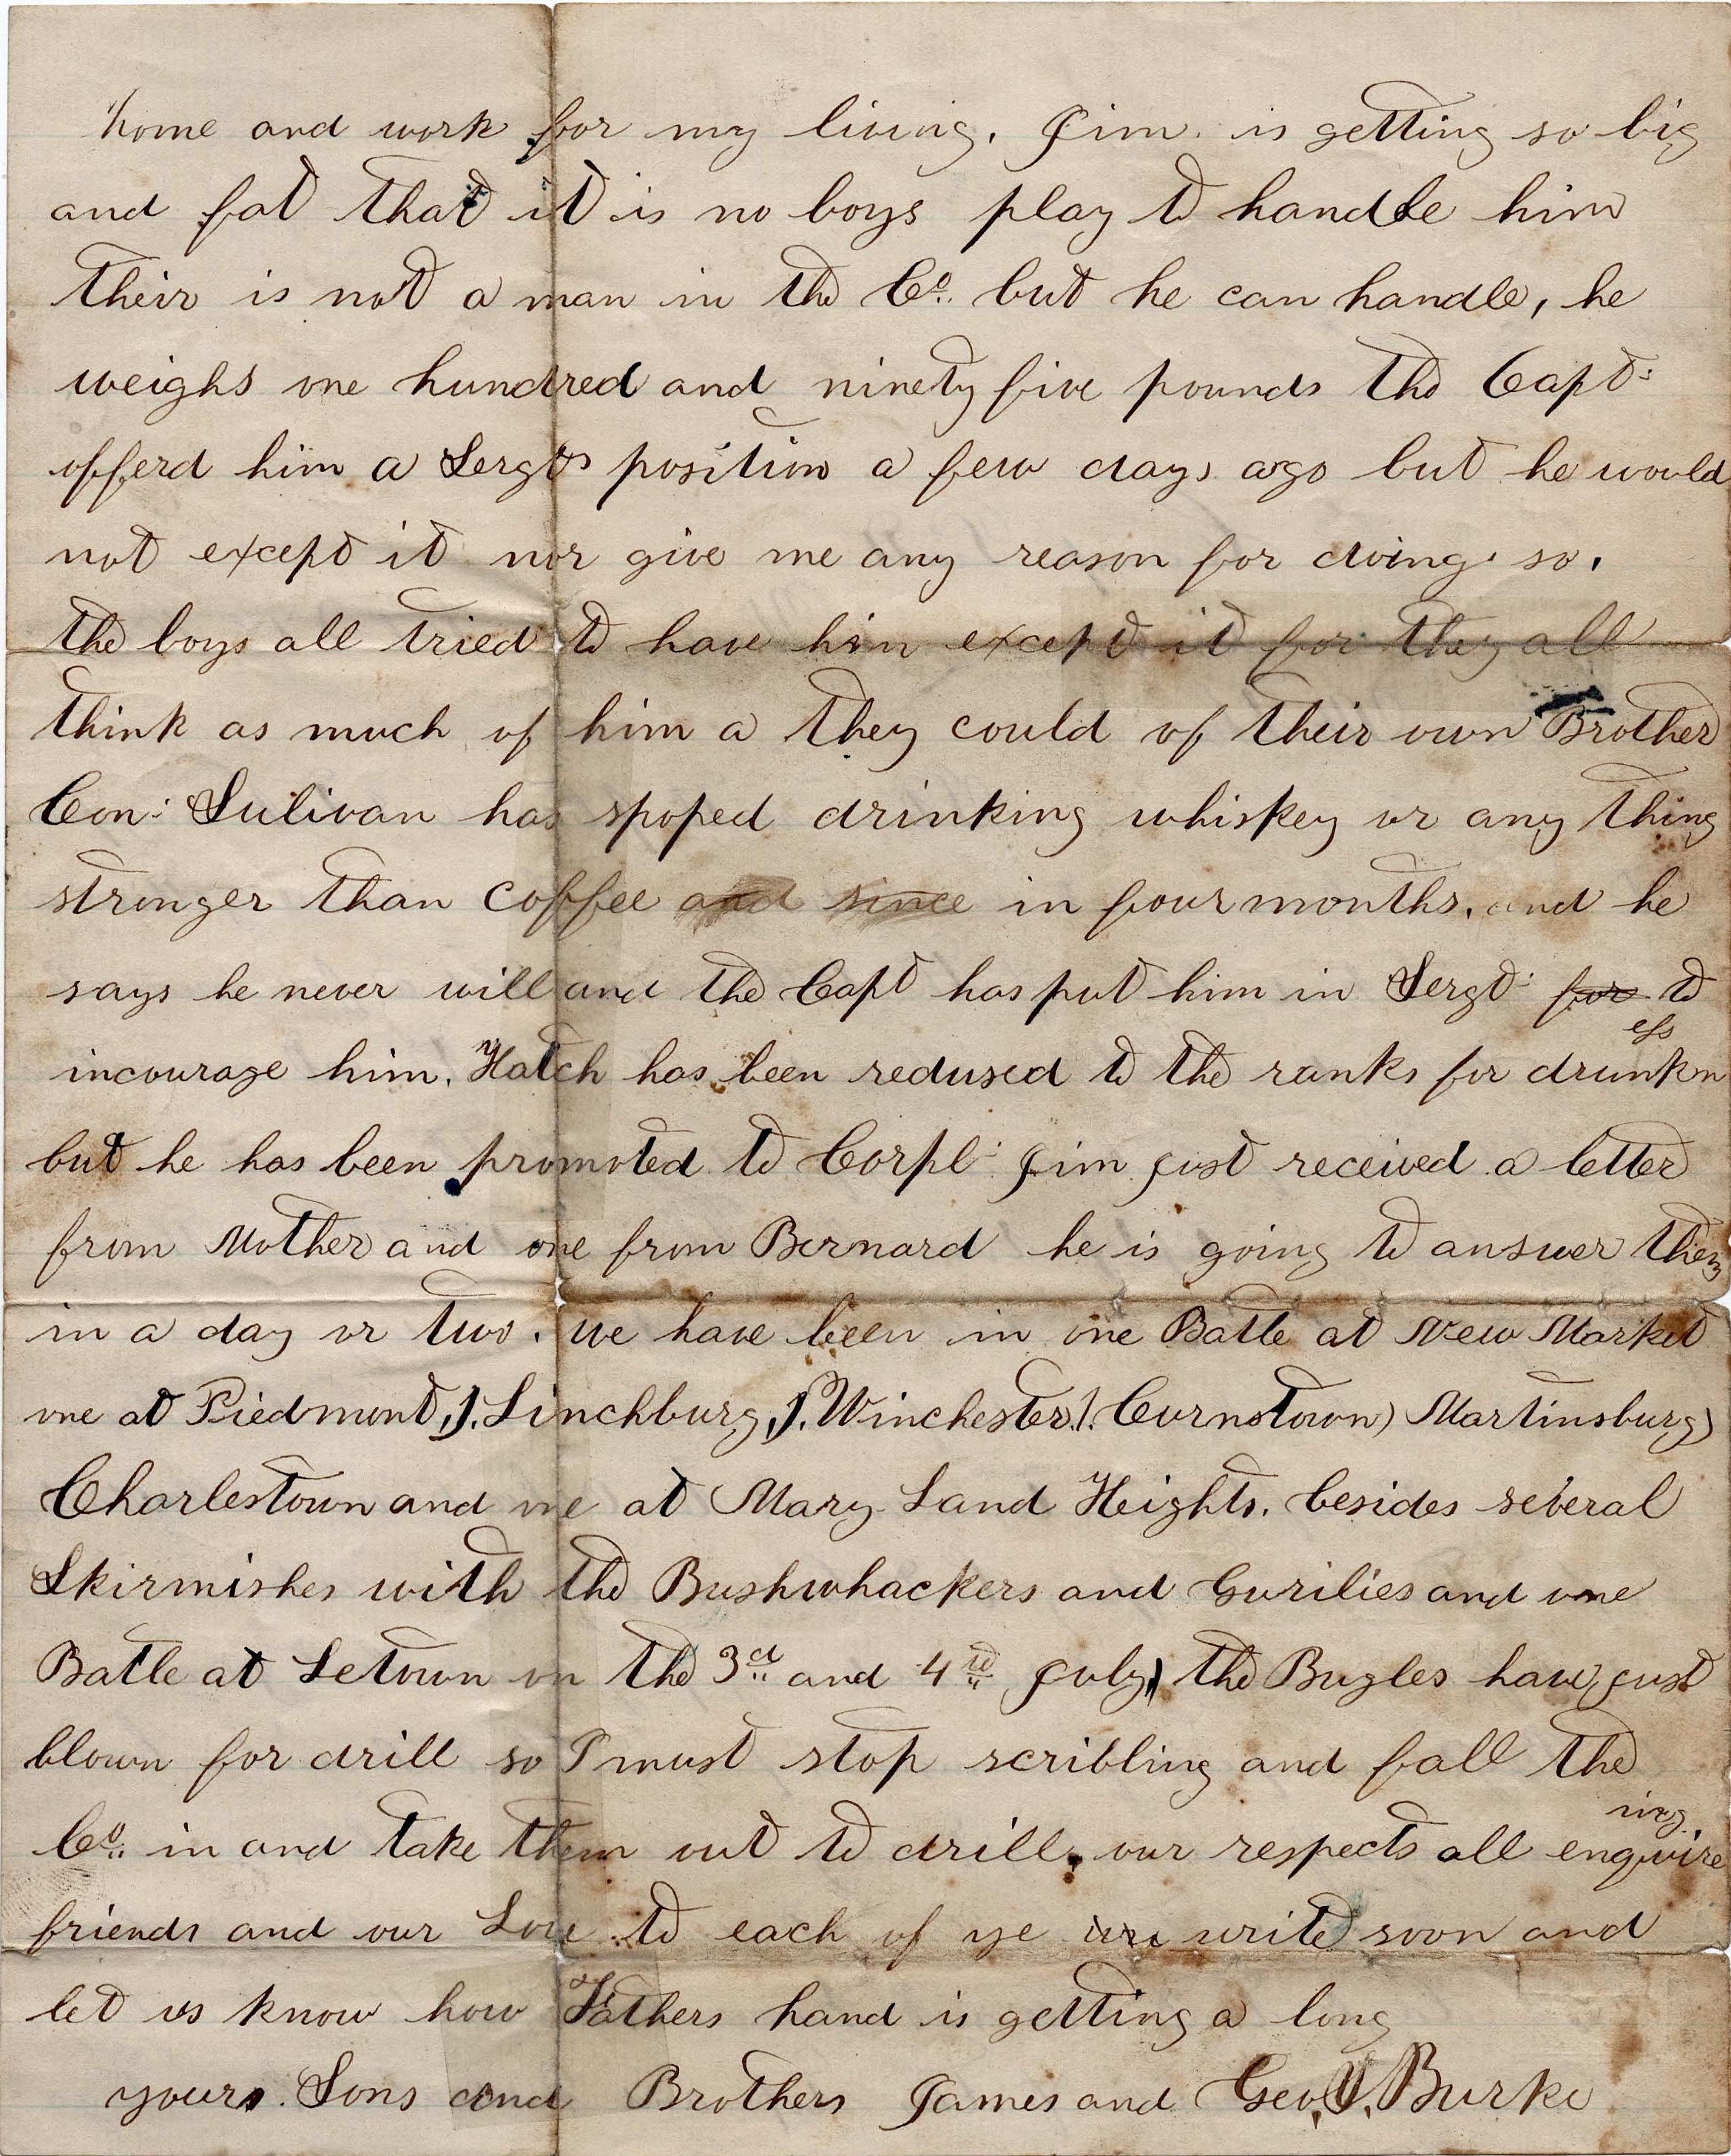 home and work for my living. Jim. is getting so big
and fat that it is no boys play to handle him
their is not a man in the Co. but he can handle, he
weighs one hundred and ninety five pounds the Capt:
offerd him a Sergts position a few days ago but he would
not except it nor give me any reason for doing so.
the boys all tried to have him except it for they all
think as much of him a they could of their own Brother
Con: Sulivan has spoped drinking whiskey or any thing
stronger than coffee and since in four months. and he
says he never will and the Capt has put him in Sergt: for to
incourage him. Hatch has been redused to the ranks for drunkness
but he has been promoted to Corpl: Jim just received a letter
from Mother and one from Bernard he is going to answer them
in a day or two. we have been in one Batle at New Market
one at Piedmont, 1. Linchburg, 1. Winchester, 1. Curnstown) Martinsburg)
Charlestown and one at Mary Land Heights. besides several
Skirmishes with the Bushwhackers and Gurilies and one
Batle at Letown on the 3d and 4th July, the Bugles have just
blown for drill so I must stop scribling and fall the
Co. in and take them out to drill. our respects all enquireing
friends and our Love to each of ye write soon and
let us know how Fathers hand is getting a long
yours. Sons and Brothers James and Geo. Burke